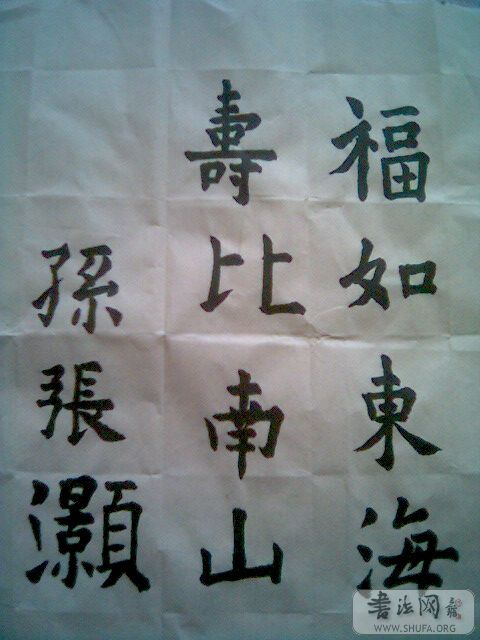 福如東海
壽比南山
孫張灝
書法网
WWW.SHUFA.ORG